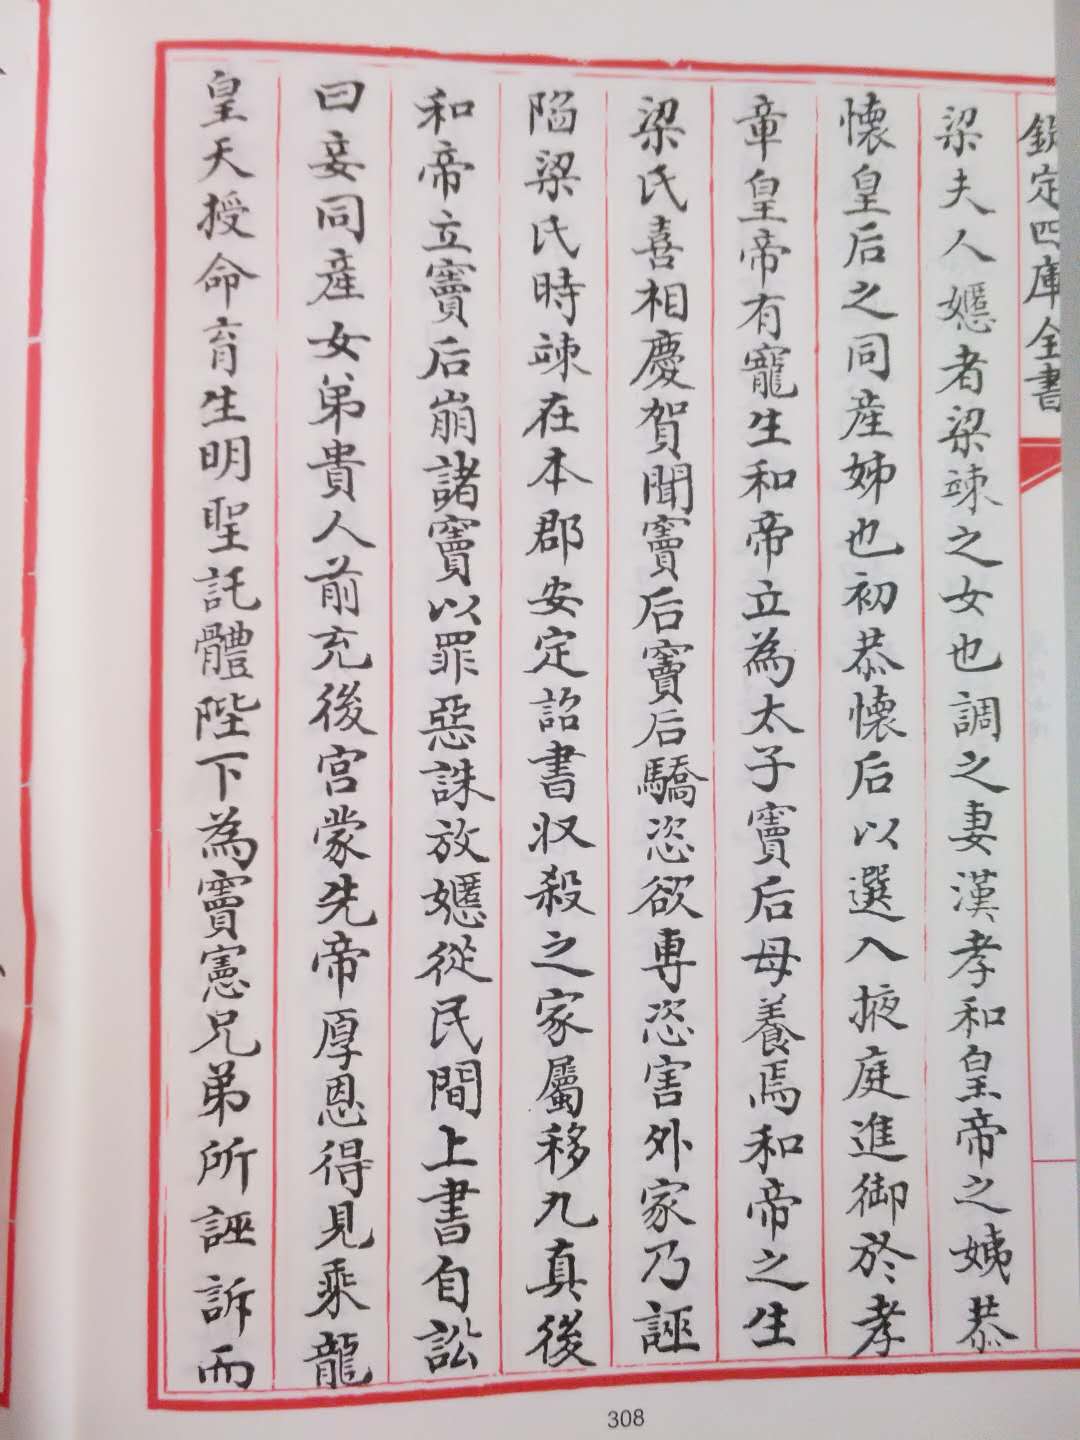 欽定四庫全書
梁夫人嫕者梁竦之女也調之妻漢孝和皇帝之姨恭
懷皇后之同產姊也初恭懷后以選入掖庭進御於孝
章皇帝有寵生和帝立為太子竇后母養焉和帝之生
梁氏喜相慶賀聞竇后竇后驕恣欲專恣害外家乃誣
陷梁氏時竦在本郡安定詔書収殺之家屬移九真後
和帝立竇后崩諸竇以罪惡誅放嫕從民間上書自訟
曰妾同產女弟貴人前充後宮蒙先帝厚恩得見乘龍
皇天授命育生明聖託體陛下為竇憲兄弟所誣訴而
308